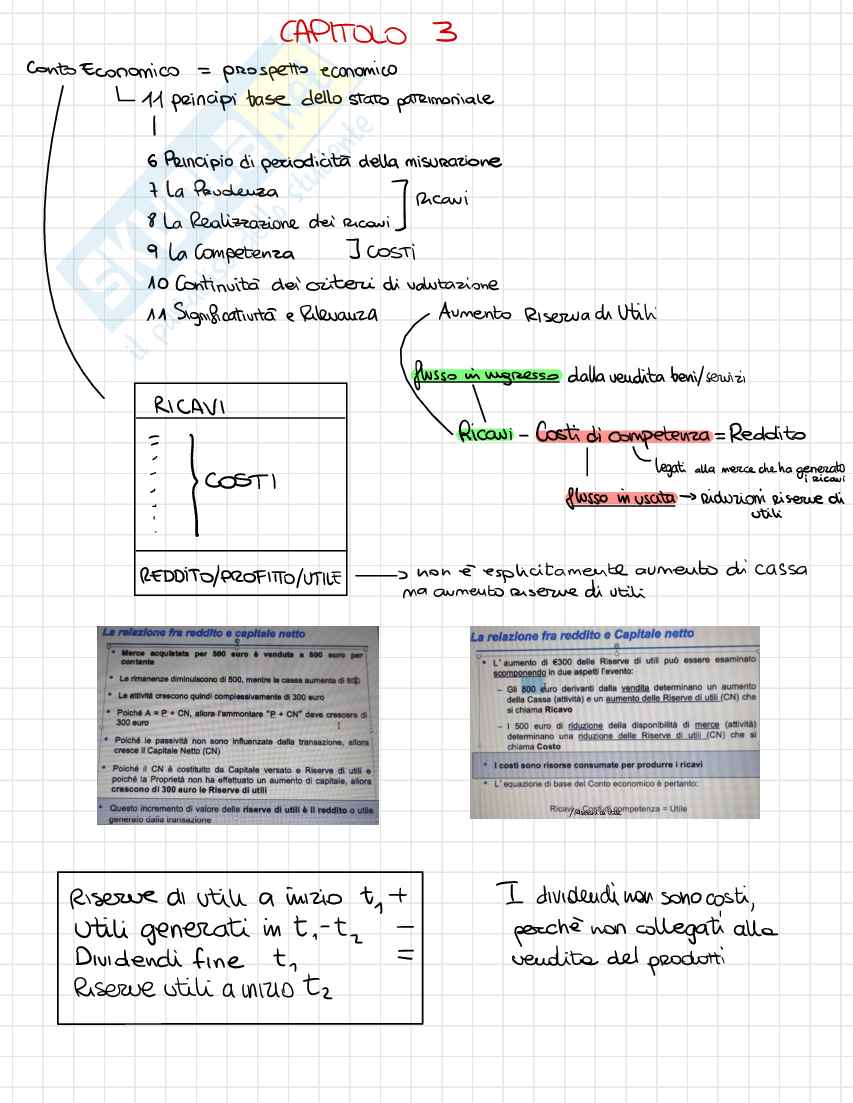 CAPITOLO 3
Conto Economico = prospetto economico
11 principi base dello stato patrimoniale
6 Principio di periodicità della misurazione
7 La Prudenza
8 La Realizzazione dei Ricavi
Ricavi
9 La Competenza
COSTI
10 Continuità dei criteri di valutazione
11 Significatività e Rilevanza
Aumento Riserva di Utili
flusso in ingresso dalla vendita beni/servizi
Ricavi - Costi di competenza = Reddito
legati alla merce che ha generato
i ricavi
flusso in uscita → riduzioni riserve di
utili
RICAVI
COSTI
REDDITO/PROFITTO/UTILE
non è esplicitamente aumento di cassa
ma aumento riserve di utili
La relazione fra reddito e capitale netto
• Merce acquistata per 500 euro è venduta a 800 euro per
contante
• Le rimanenze diminuiscono di 500, mentre la cassa aumenta di 800
• Le attività crescono quindi complessivamente di 300 euro
• Poiché A = P + CN, allora l'ammontare "P + CN" deve crescere di
300 euro
• Poiché le passività non sono influenzate dalla transazione, allora
cresce il Capitale Netto (CN)
• Poiché il CN è costituito da Capitale versato e Riserve di utili e
poiché la Proprietà non ha effettuato un aumento di capitale, allora
crescono di 300 euro le Riserve di utili
• Questo incremento di valore delle riserve di utili è il reddito o utile
generato dalla transazione
La relazione fra reddito e Capitale netto
• L'aumento di €300 delle Riserve di utili può essere esaminato
scomponendo in due aspetti l'evento:
– Gli 800 euro derivanti dalla vendita determinano un aumento
della Cassa (attività) e un aumento delle Riserve di utili (CN) che
si chiama Ricavo
– I 500 euro di riduzione della disponibilità di merce (attività)
determinano una riduzione delle Riserve di utili (CN) che si
chiama Costo
• I costi sono risorse consumate per produrre i ricavi
• L'equazione di base del Conto economico è pertanto:
Ricavi - Costi di competenza = Utile
Riserve di utili a inizio t1 +
Utili generati in t1-t2 -
Dividendi fine t1 =
Riserve utili a inizio t2
I dividendi non sono costi,
perchè non collegati alla
vendita del prodotti
SKUOLA.net
il paradiso dello studente